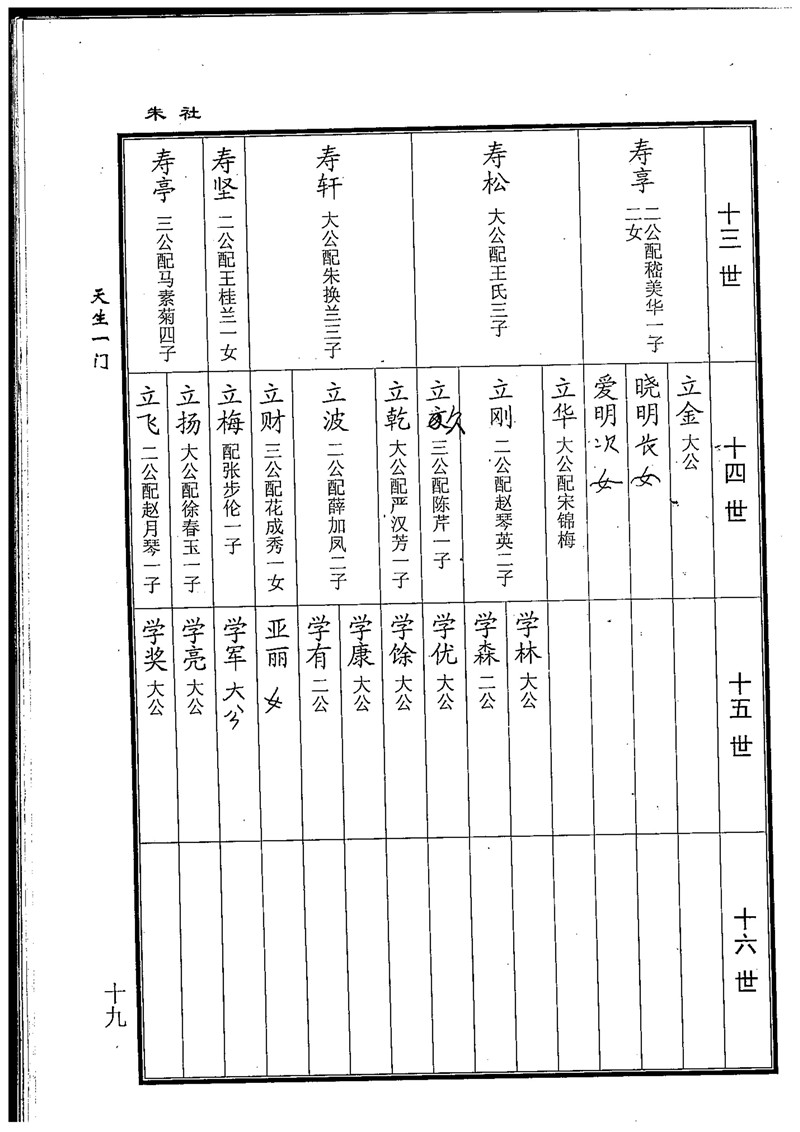 朱社
十三世
寿享 二公配嵇美华一子二女
寿松 大公配王氏三子
寿轩 大公配朱换兰三子
寿坚 二公配王桂兰一女
寿亭 三公配马素菊四子
十四世
立金 大公
晓明 长女
爱明 次女
立华 大公配宋锦梅
立刚 二公配赵琴英二子
立 三公配陈芹一子
立乾 大公配严汉芳一子
立波 二公配薛加凤二子
立财 三公配花成秀一女
立梅 配张步伦一子
立扬 大公配徐春玉一子
立飞 二公配赵月琴一子
十五世
学林 大公
学森 二公
学优 大公
学馀 大公
学康 大公
学有 二公
亚丽 女
学军 大公
学亮 大公
学奖 大公
十六世
天生一门
十九